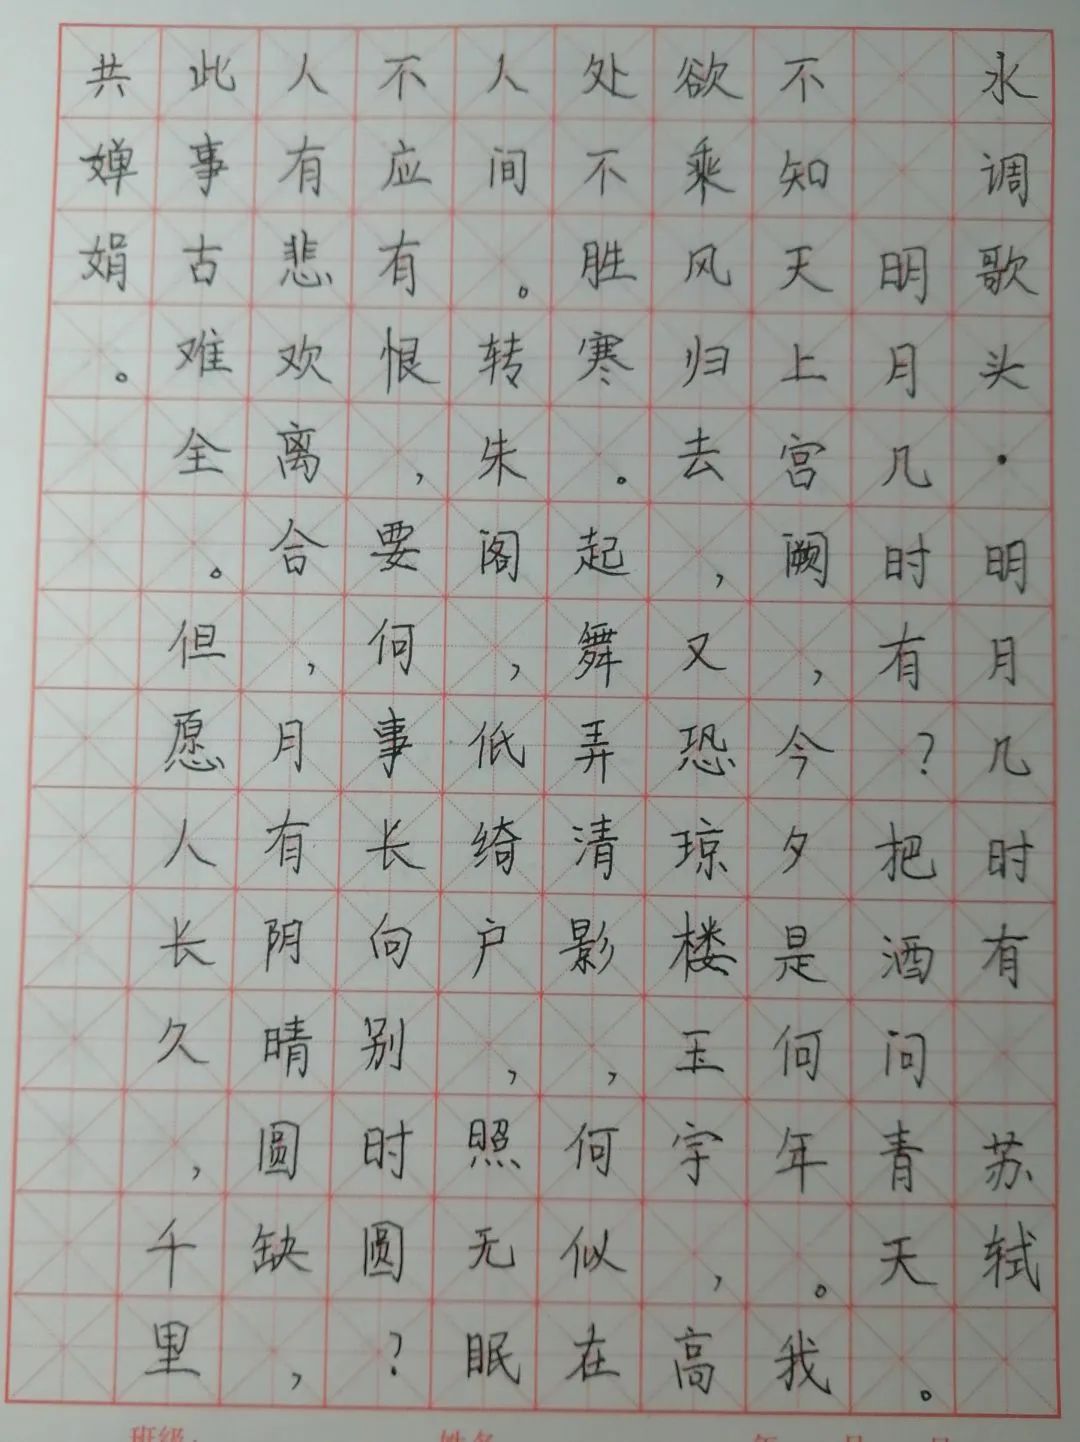 水调歌头·明月几时有 苏轼
明月几时有？把酒问青天。
不知天上宫阙，今夕是何年。我
欲乘风归去，又恐琼楼玉宇，高
处不胜寒。起舞弄清影，何似在
人间。转朱阁，低绮户，照无眠
不应有恨，要何事长向别时圆？
人有悲欢离合，月有阴晴圆缺，
此事古难全。但愿人长久，千里
共婵娟。
班级： 姓名 年 月 日